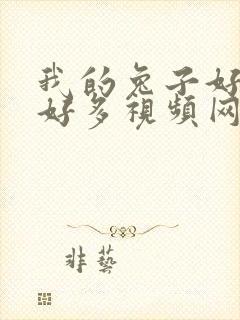 我的兔子好
好多視頻网
非藝